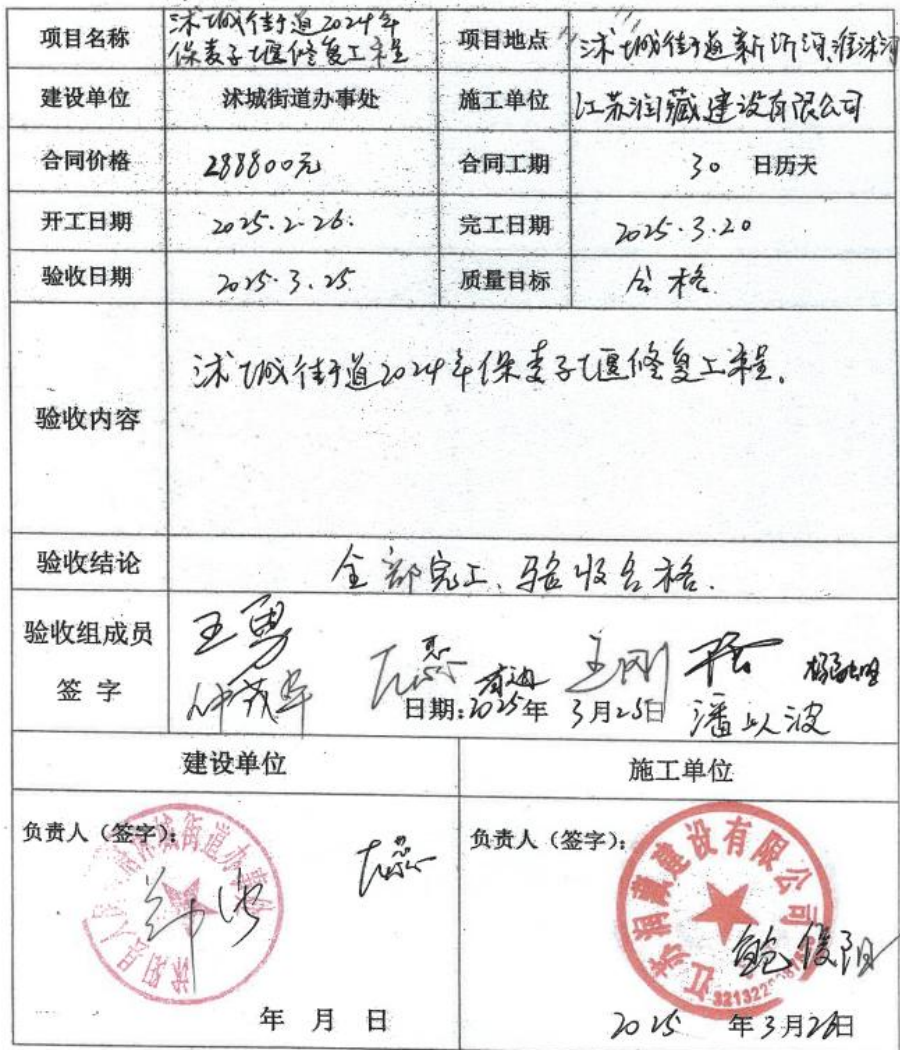 项目名称 沭城街道2024年
保麦子堰修复工程
项目地点 沭城街道新沂河、淮沭河
建设单位 沭城街道办事处 施工单位 江苏润藏建设有限公司
合同价格 288800元 合同工期 30 日历天
开工日期 2025.2.26. 完工日期 2025.3.20
验收日期 2025.3.25 质量目标 合格.
验收内容 沭城街道2024年保麦子堰修复工程.
验收结论 全部完工、验收合格.
验收组成员
签 字
王勇
仲茂华 王刚
日期:2025年 3月25日 潘以波
建设单位 施工单位
负责人(签字): 负责人(签字):
江苏润藏建设有限公司
鲍俊阳
年 月 日 2025 年3月26日